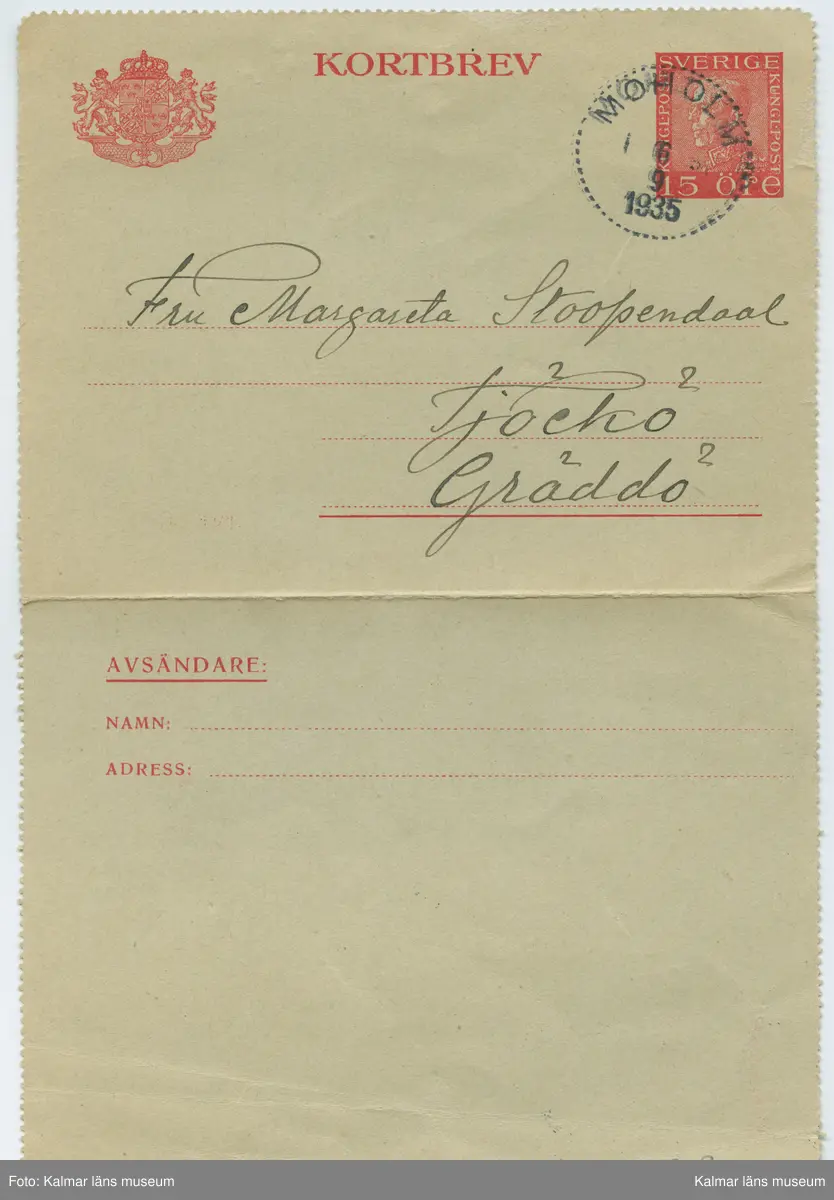 KORTBREV
SVERIGE
KUNGL.POST
KUNGL.POST
15 ÖRE
MOHOLM
6
9
1935
Fru Margareta Stoopendaal
Tjöckö
Gräddö
AVSÄNDARE:
NAMN:
ADRESS:
Foto: Kalmar läns museum
Kalmar läns museum